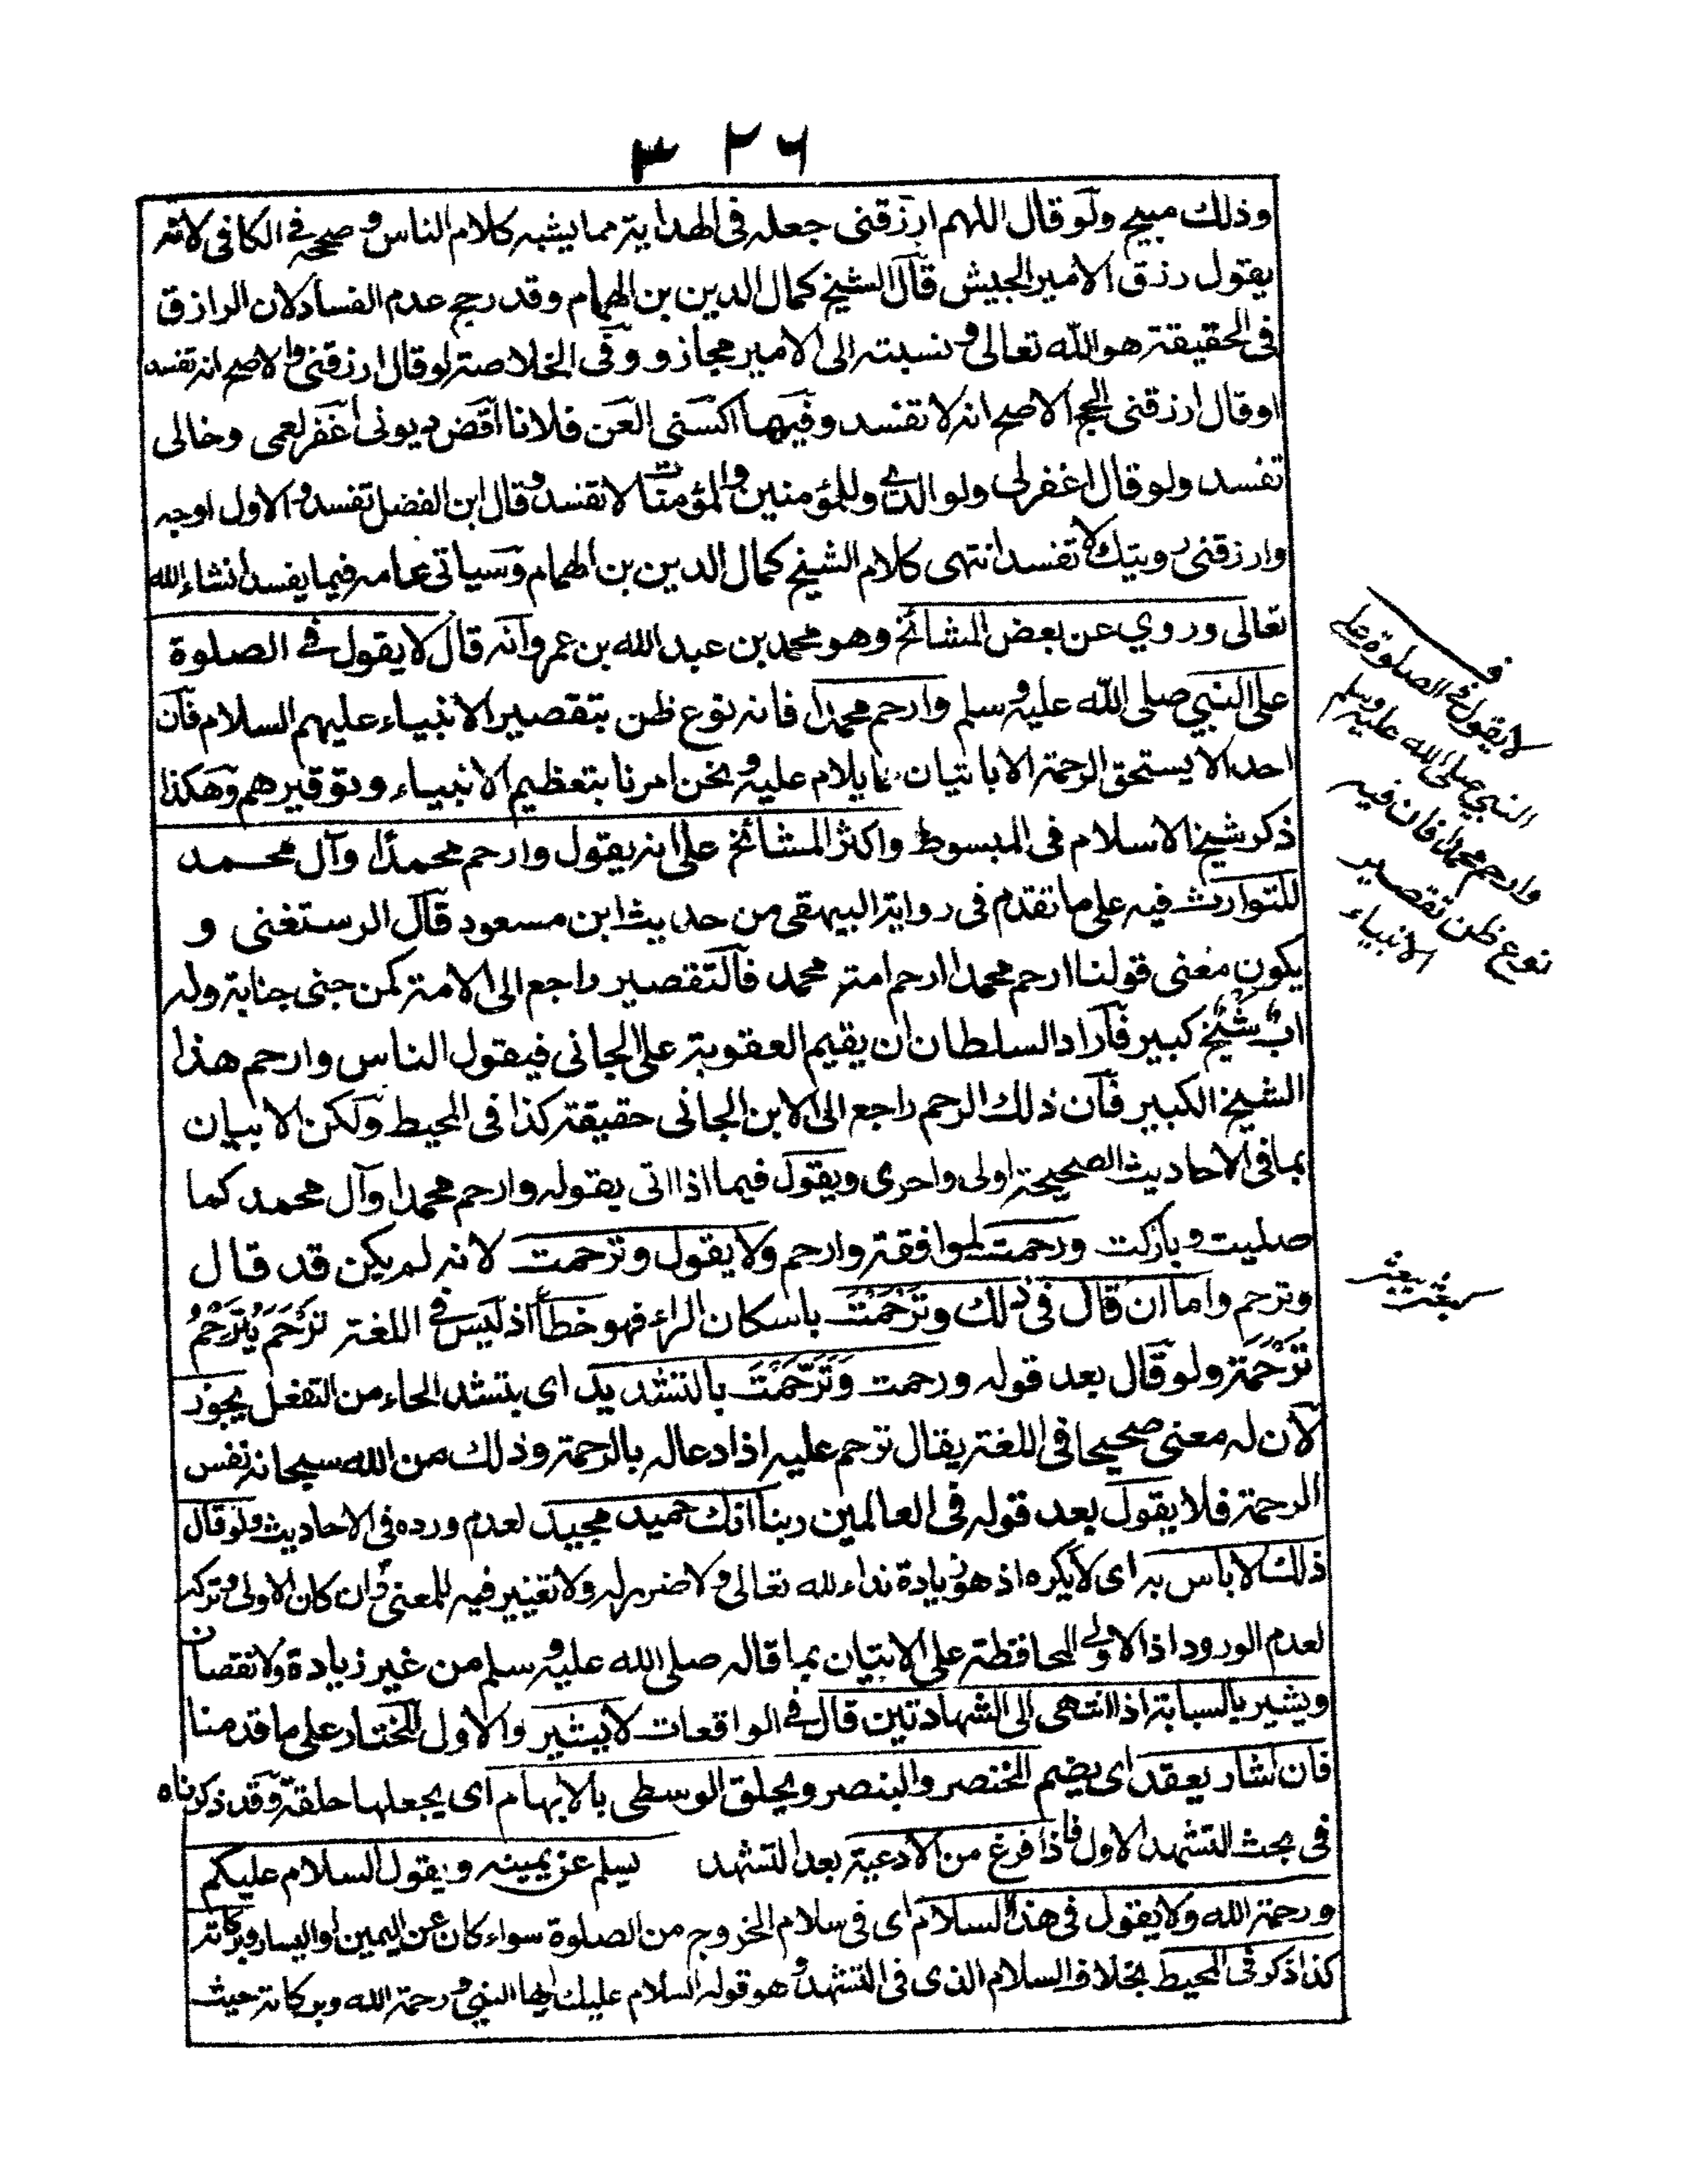 ٣٢٦
وذلك مبيح ولو قال اللهم ارزقنى جعله فى الهداية مما يشبه كلام الناس وصححه فى الكافى لانه
يقول رزق الامير الجيش قال الشيخ كمال الدين بن الهمام وقد رجح عدم الفساد لان الرازق
فى الحقيقة هو الله تعالى ونسبته الى الامير مجاز و وفى الخلاصة لو قال ارزقنى والاصح انه تفسد
او قال ارزقنى الحج الاصح انه لا تفسد وفيها اكسنى العن فلانا اقض ديونى اغفر لعمى وخالى
تفسد ولو قال اغفر لى ولوالدى وللمؤمنين والمؤمنات لا تفسد وقال ابن الفضل تفسد والاول اوجه
وارزقنى رويتك لا تفسد انتهى كلام الشيخ كمال الدين بن الهمام وسياتى تمامه فيما يفسد انشاء الله
تعالى وروي عن بعض المشائخ وهو محمد بن عبد الله بن عمر وانه قال لا يقول فى الصلوة
على النبي صلى الله عليه وسلم وارحم محمدا فانه نوع ظن بتقصير الانبياء عليهم السلام فان
احدا لا يستحق الرحمة الا باتيان ما يلام عليه ونحن امرنا بتعظيم الانبياء وتوقيرهم وهكذا
ذكر شيخ الاسلام فى المبسوط واكثر المشائخ على انه يقول وارحم محمدًا وآل محمد
للتوارث فيه على ما تقدم فى رواية البيهقى من حديث ابن مسعود قال الرستغنى و
يكون معنى قولنا ارحم محمدا ارحم امة محمد فالتقصير راجع الى الامة كمن جنى جناية وله
ابٌ شيخٌ كبير فاراد السلطان ان يقيم العقوبة على الجانى فيقول الناس وارحم هذا
الشيخ الكبير فان ذلك الرحم راجع الى الابن الجانى حقيقة كذا فى المحيط ولكن الاتيان
بما فى الاحاديث الصحيحة اولى واحرى ويقول فيما اذا اتى بقوله وارحم محمدا وآل محمد كما
صليت وباركت ورحمت لموافقة وارحم ولا يقول وترحمت لانه لم يكن قد قال
وترحم واما ان قال فى ذلك وتَرْحَمْتَ باسكان الراء فهو خطأ اذ ليس فى اللغة تَرْحَمَ يُتَرْحِمُ
تَرْحَمَةً ولو قال بعد قوله ورحمت وَتَرَحَّمْتَ بالتشديد اى بتشد الحاء من التفعل يجوز
لان له معنى صحيحا فى اللغة يقال ترحم عليه اذا دعا له بالرحمة وذلك من الله سبحانه نفس
الرحمة فلا يقول بعد قوله فى العالمين ربنا انك حميد مجيد لعدم ورده فى الاحاديث ولو قال
ذلك لا باس به اى لا يكره اذ هو زيادة نداء لله تعالى ولا ضرر له ولا تغيير فيه للمعنى وان كان الاولى تركه
لعدم الورود اذ الاولى المحافظة على الاتيان بما قاله صلى الله عليه وسلم من غير زيادة ولا نقصان
ويشير بالسبابة اذا انتهى الى الشهادتين قال فى الواقعات لا يشير والاول المختار على ما قدمنا
فان اشار يعقد اى يضم الخنصر والبنصر ويحلق الوسطى بالابهام اى يجعلها حلقة وقد ذكرناه
فى بحث التشهد الاول فاذا فرغ من الادعية بعد التشهد يسلم عن يمينه ويقول السلام عليكم
ورحمة الله ولا يقول فى هذا السلام اى فى سلام الخروج من الصلوة سواء كان عن اليمين او اليسار وبركاته
كذا ذكر فى المحيط بخلاف السلام الذى فى التشهد وهو قوله السلام عليك ايها النبي ورحمة الله وبركاته حيث
ف
لا يقول فى الصلوة على
النبي صلى الله عليه وسلم
وارحم محمدا فان فيه
نوع ظن تقصير
الانبياء